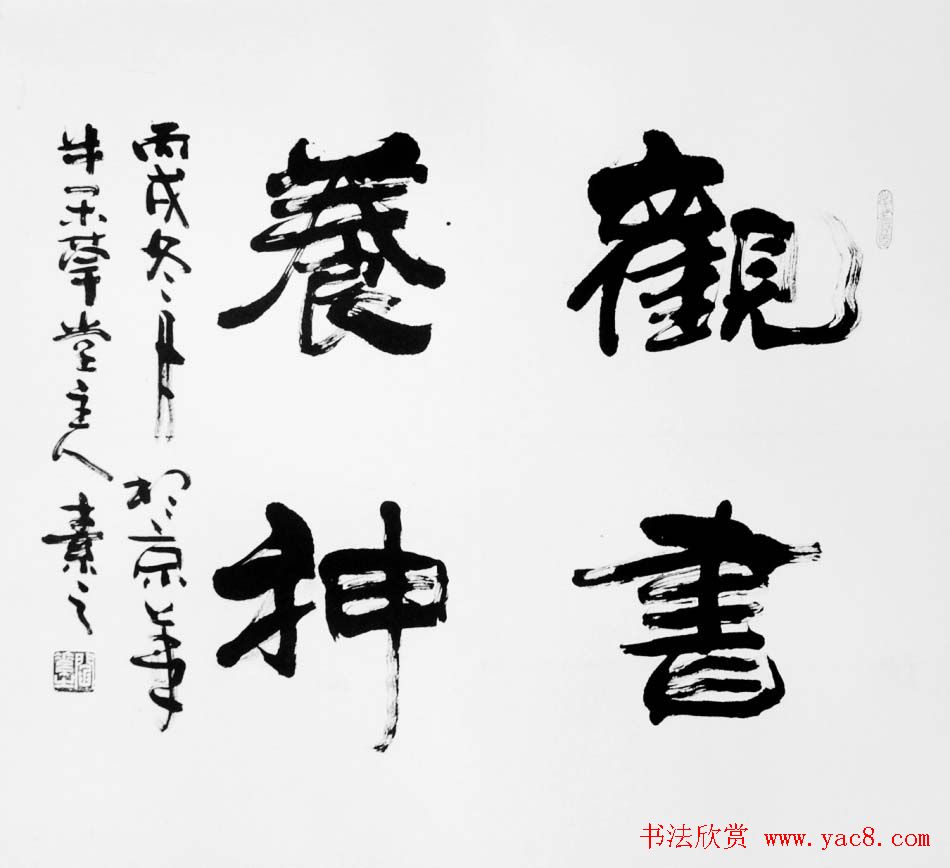 觀書
養神
丙戌冬月於京華
堂主人素之
书法欣赏 www.yac8.com